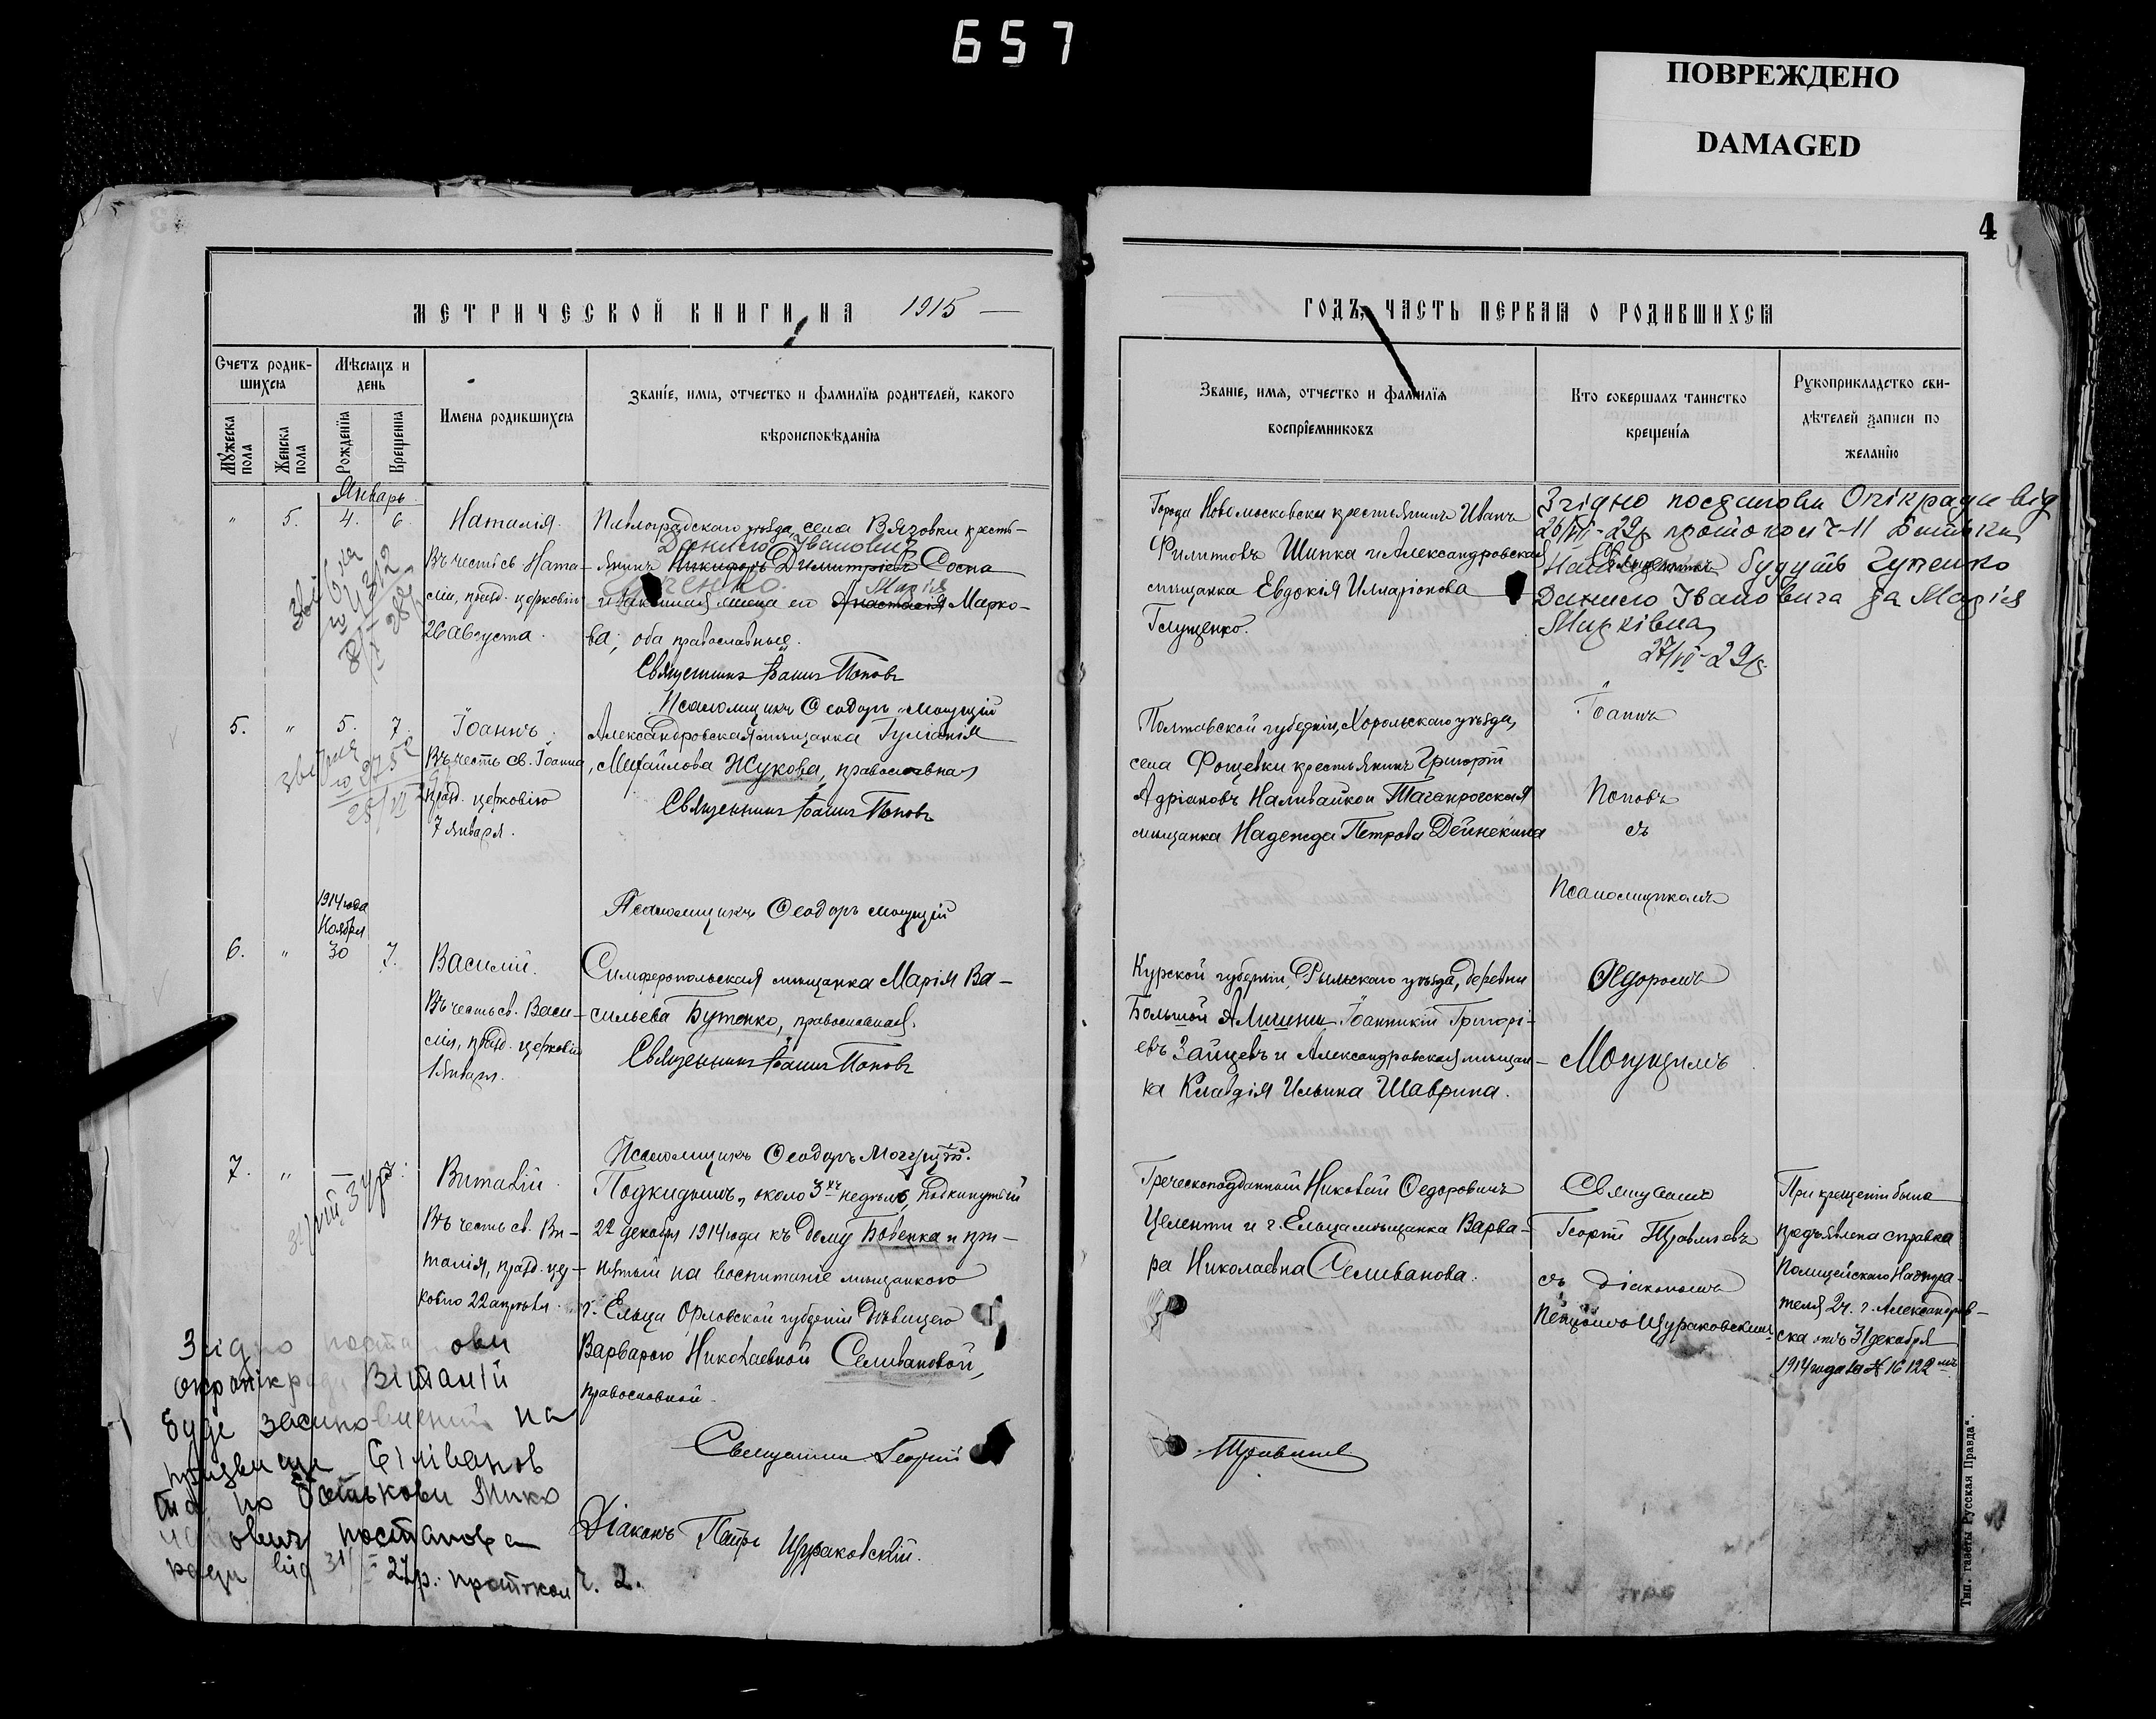 657
ПОВРЕЖДЕНО
DAMAGED
4
МЕТРИЧЕСКОЙ КНИГИ НА 1915
ГОДЪ, ЧАСТЬ ПЕРВАЯ О РОДИВШИХСЯ
Счетъ родив-
шихся
Мѣсяцъ и
день
Мужеска
пола
Женска
пола
Рожденія
Крещенія
Имена родившихся
Званіе, имя, отчество и фамилія родителей, какого
вѣроисповѣданія
Званіе, имя, отчество и фамилія
воспріемниковъ
Кто совершалъ таинство
крещенія
Рукоприкладство сви-
дѣтелей записи по
желанію
Январь
" 5. 4. 6. Наталія.
Въ честь св. Ната-
ліи, празд. церковію
26 Августа.
Павлоградскаго уѣзда, села Вязовки кресть-
Данило Іванович
янинъ Никифоръ Димитріевъ Сосна
Марія
и законная жена его Анастасія Марко-
ва, оба православные.
Священникъ Іоаннъ Поповъ
Псаломщикъ Ѳеодоръ Могущій
Города Новомосковска крестьянинъ Иванъ
Филиповъ Шипка и Александровская
мѣщанка Евдокія Илларіонова
Глущенко.
Згідно постанови Опікради від
26/VII-29р протокол ч-11 батьки
будуть
Данило Івановича да Марія
Марківна
27/VII-29р.
5. " 5. 7. Іоаннъ.
Въ честь св. Іоанна,
празд. церковію
7 января.
Александровская мѣщанка Гуліанія
Михайлова Жукова, православная
Священникъ Іоаннъ Поповъ
Псаломщикъ Ѳеодоръ Могущій
Полтавской губерніи, Хорольскаго уѣзда,
села Фощевки крестьянинъ Григорій
Адріановъ Наливайко и Таганрогская
мѣщанка Надежда Петрова Дейнекина
Іоаннъ
Поповъ
съ
Псаломщикомъ
1914 года
Ноября
6. " 30 7. Василій.
Въ честь св. Васи-
лія, празд. церковію
1 Января.
Симферопольская мѣщанка Марія Ва-
сильева Бутенко, православная.
Священникъ Іоаннъ Поповъ
Псаломщикъ Ѳеодоръ Могущій.
Курской губерніи, Рыльскаго уѣзда, деревни
Большой Алишни Іоанникій Григорі-
евъ Зайцевъ и Александровская мѣщан-
ка Клавдія Ильина Шаврина.
Ѳедоромъ
Могущимъ
7. " — 7. Виталій.
Въ честь св. Ви-
талія, празд. цер-
ковію 22 апрѣля.
Подкидышъ, около 3хъ недѣль, подкинутый
22 декабря 1914 года къ дому Бовенка и при-
нятый на воспитаніе мѣщанкою
г. Ельца Орловской губерніи дѣвицею
Варварою Николаевной Селивановой,
православной.
Священникъ Георгій
Діаконъ Петръ Щураковскій.
Греческоподданный Николай Ѳедоровичъ
Целенти и г. Ельца мѣщанка Варва-
ра Николаевна Селиванова.
Священникъ
Георгій
съ діакономъ
Петромъ Щураковскимъ
При крещеніи была
предъявлена справка
Полицейскаго Надзира-
теля 2 ч. г. Александров-
ска отъ 31 декабря
1914 года за № 16122мъ
Згідно постанови
Віталій
буде засиновлений на
прізвище Селіванов
та по батькови Мико
лаович постанова
ради від 31/ 27р. протокол ч. 2.
Тип. газеты "Русская Правда".